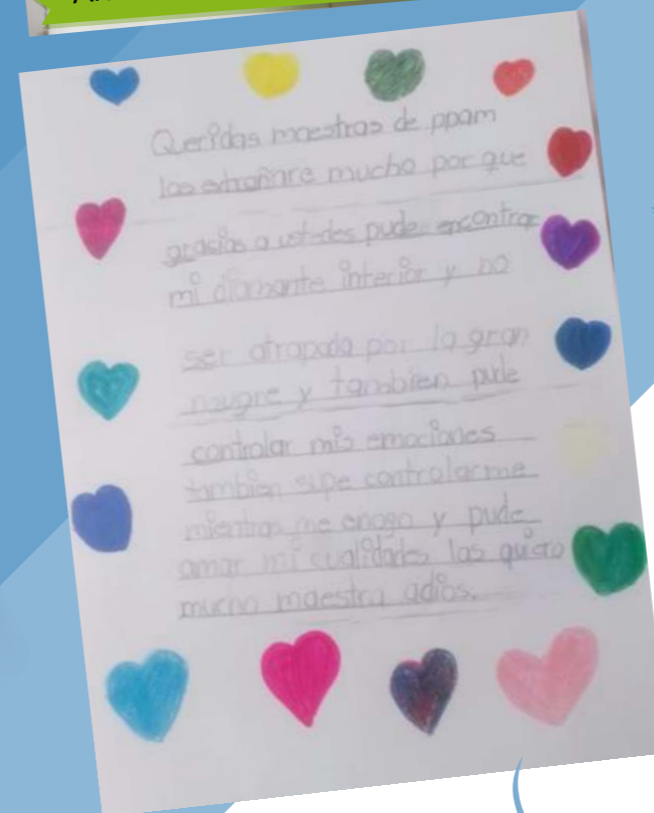 Queridas maestras de ppam
las extrañare mucho por que
grasias a ustedes pude encontrar
mi diamante interior y no
ser atrapada por la gran
y tambien pude
controlar mis emociones
tambien supe controlarme
mientras me enogo y pude
amar mi cualidades las quiero
mucho maestra adios.